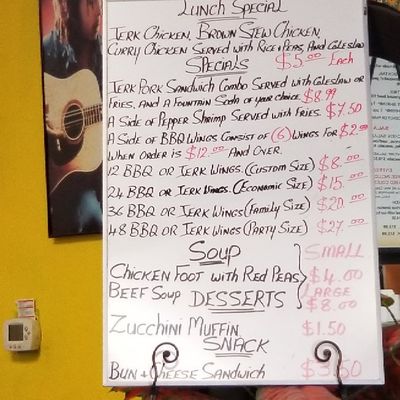 Lunch Special
Jerk Chicken, Brown Stew Chicken,
Curry Chicken Served with Rice & Peas, And Coleslaw
Specials $5.00 Each
Jerk Pork Sandwich Combo Served with Coleslaw or
Fries, and a Fountain Soda of your choice $8.99
A Side of Pepper Shrimp Served with Fries. $7.50
A Side of BBQ Wings Consist of (6) Wings For $2.99
When order is $12.00 And Over.
12 BBQ or Jerk Wings. (Custom Size) $8.00
24 BBQ or Jerk Wings. (Economic Size) $15.00
36 BBQ or Jerk Wings (Family Size) $20.00
48 BBQ or Jerk Wings (Party Size) $27.00
Soup Small
Chicken Foot with Red Peas $4.00
Beef Soup Large
Desserts $8.00
Zucchini Muffin $1.50
Snack
Bun + Cheese Sandwich $3.50